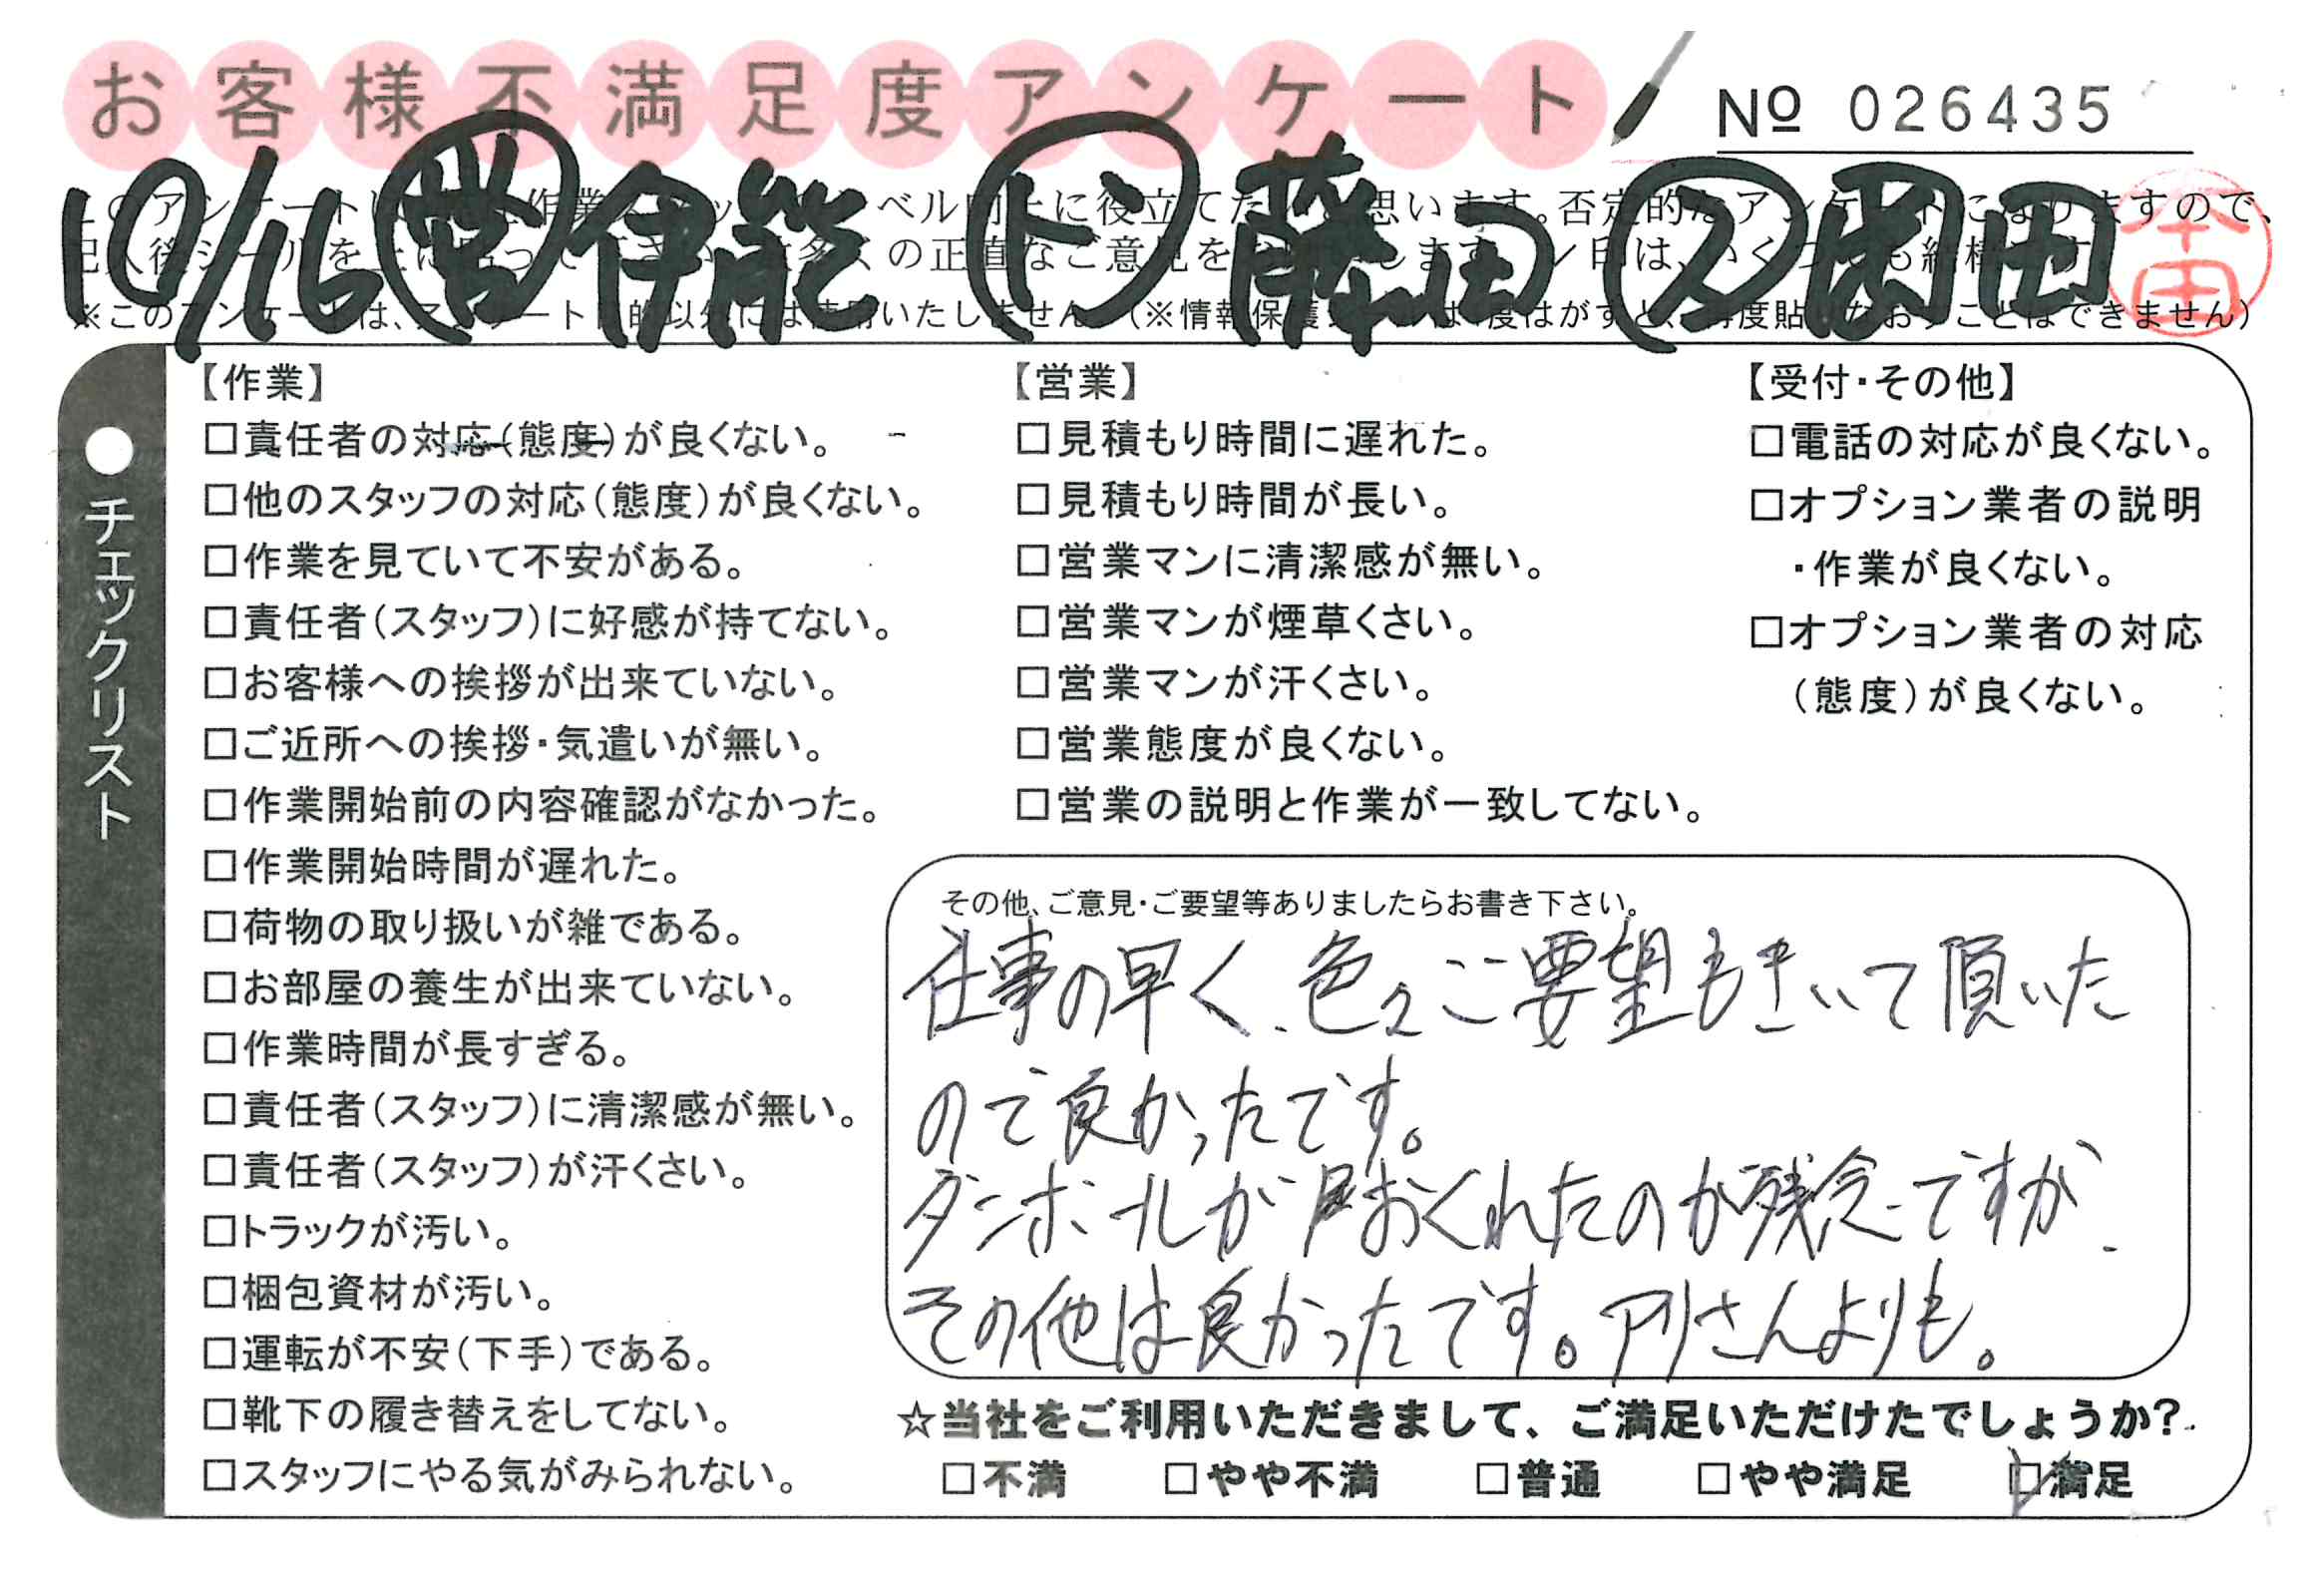 お客様不満足度アンケート
№ 026435
10/16 営 伊能 ト 藤田 ス 岡田
本田
※このアンケートは、アンケート目的以外には使用いたしません。(※情報保護シールは1度はがすと、再度貼りなおすことはできません)
●チェックリスト
【作業】
□責任者の対応(態度)が良くない。
□他のスタッフの対応(態度)が良くない。
□作業を見ていて不安がある。
□責任者(スタッフ)に好感が持てない。
□お客様への挨拶が出来ていない。
□ご近所への挨拶・気遣いが無い。
□作業開始前の内容確認がなかった。
□作業開始時間が遅れた。
□荷物の取り扱いが雑である。
□お部屋の養生が出来ていない。
□作業時間が長すぎる。
□責任者(スタッフ)に清潔感が無い。
□責任者(スタッフ)が汗くさい。
□トラックが汚い。
□梱包資材が汚い。
□運転が不安(下手)である。
□靴下の履き替えをしてない。
□スタッフにやる気がみられない。
【営業】
□見積もり時間に遅れた。
□見積もり時間が長い。
□営業マンに清潔感が無い。
□営業マンが煙草くさい。
□営業マンが汗くさい。
□営業態度が良くない。
□営業の説明と作業が一致してない。
【受付・その他】
□電話の対応が良くない。
□オプション業者の説明
・作業が良くない。
□オプション業者の対応
(態度)が良くない。
その他、ご意見・ご要望等ありましたらお書き下さい。
仕事の早く、色々ご要望もきいて頂いた
ので良かったです。
ダンボールがおくれたのが残念ですが、
その他は良かったです。アリさんよりも。
☆当社をご利用いただきまして、ご満足いただけたでしょうか?
□不満 □やや不満 □普通 □やや満足 ☑満足